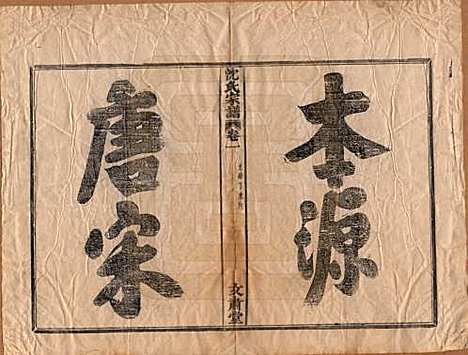 本源
沈氏宗譜
卷一
文肅堂
唐宋